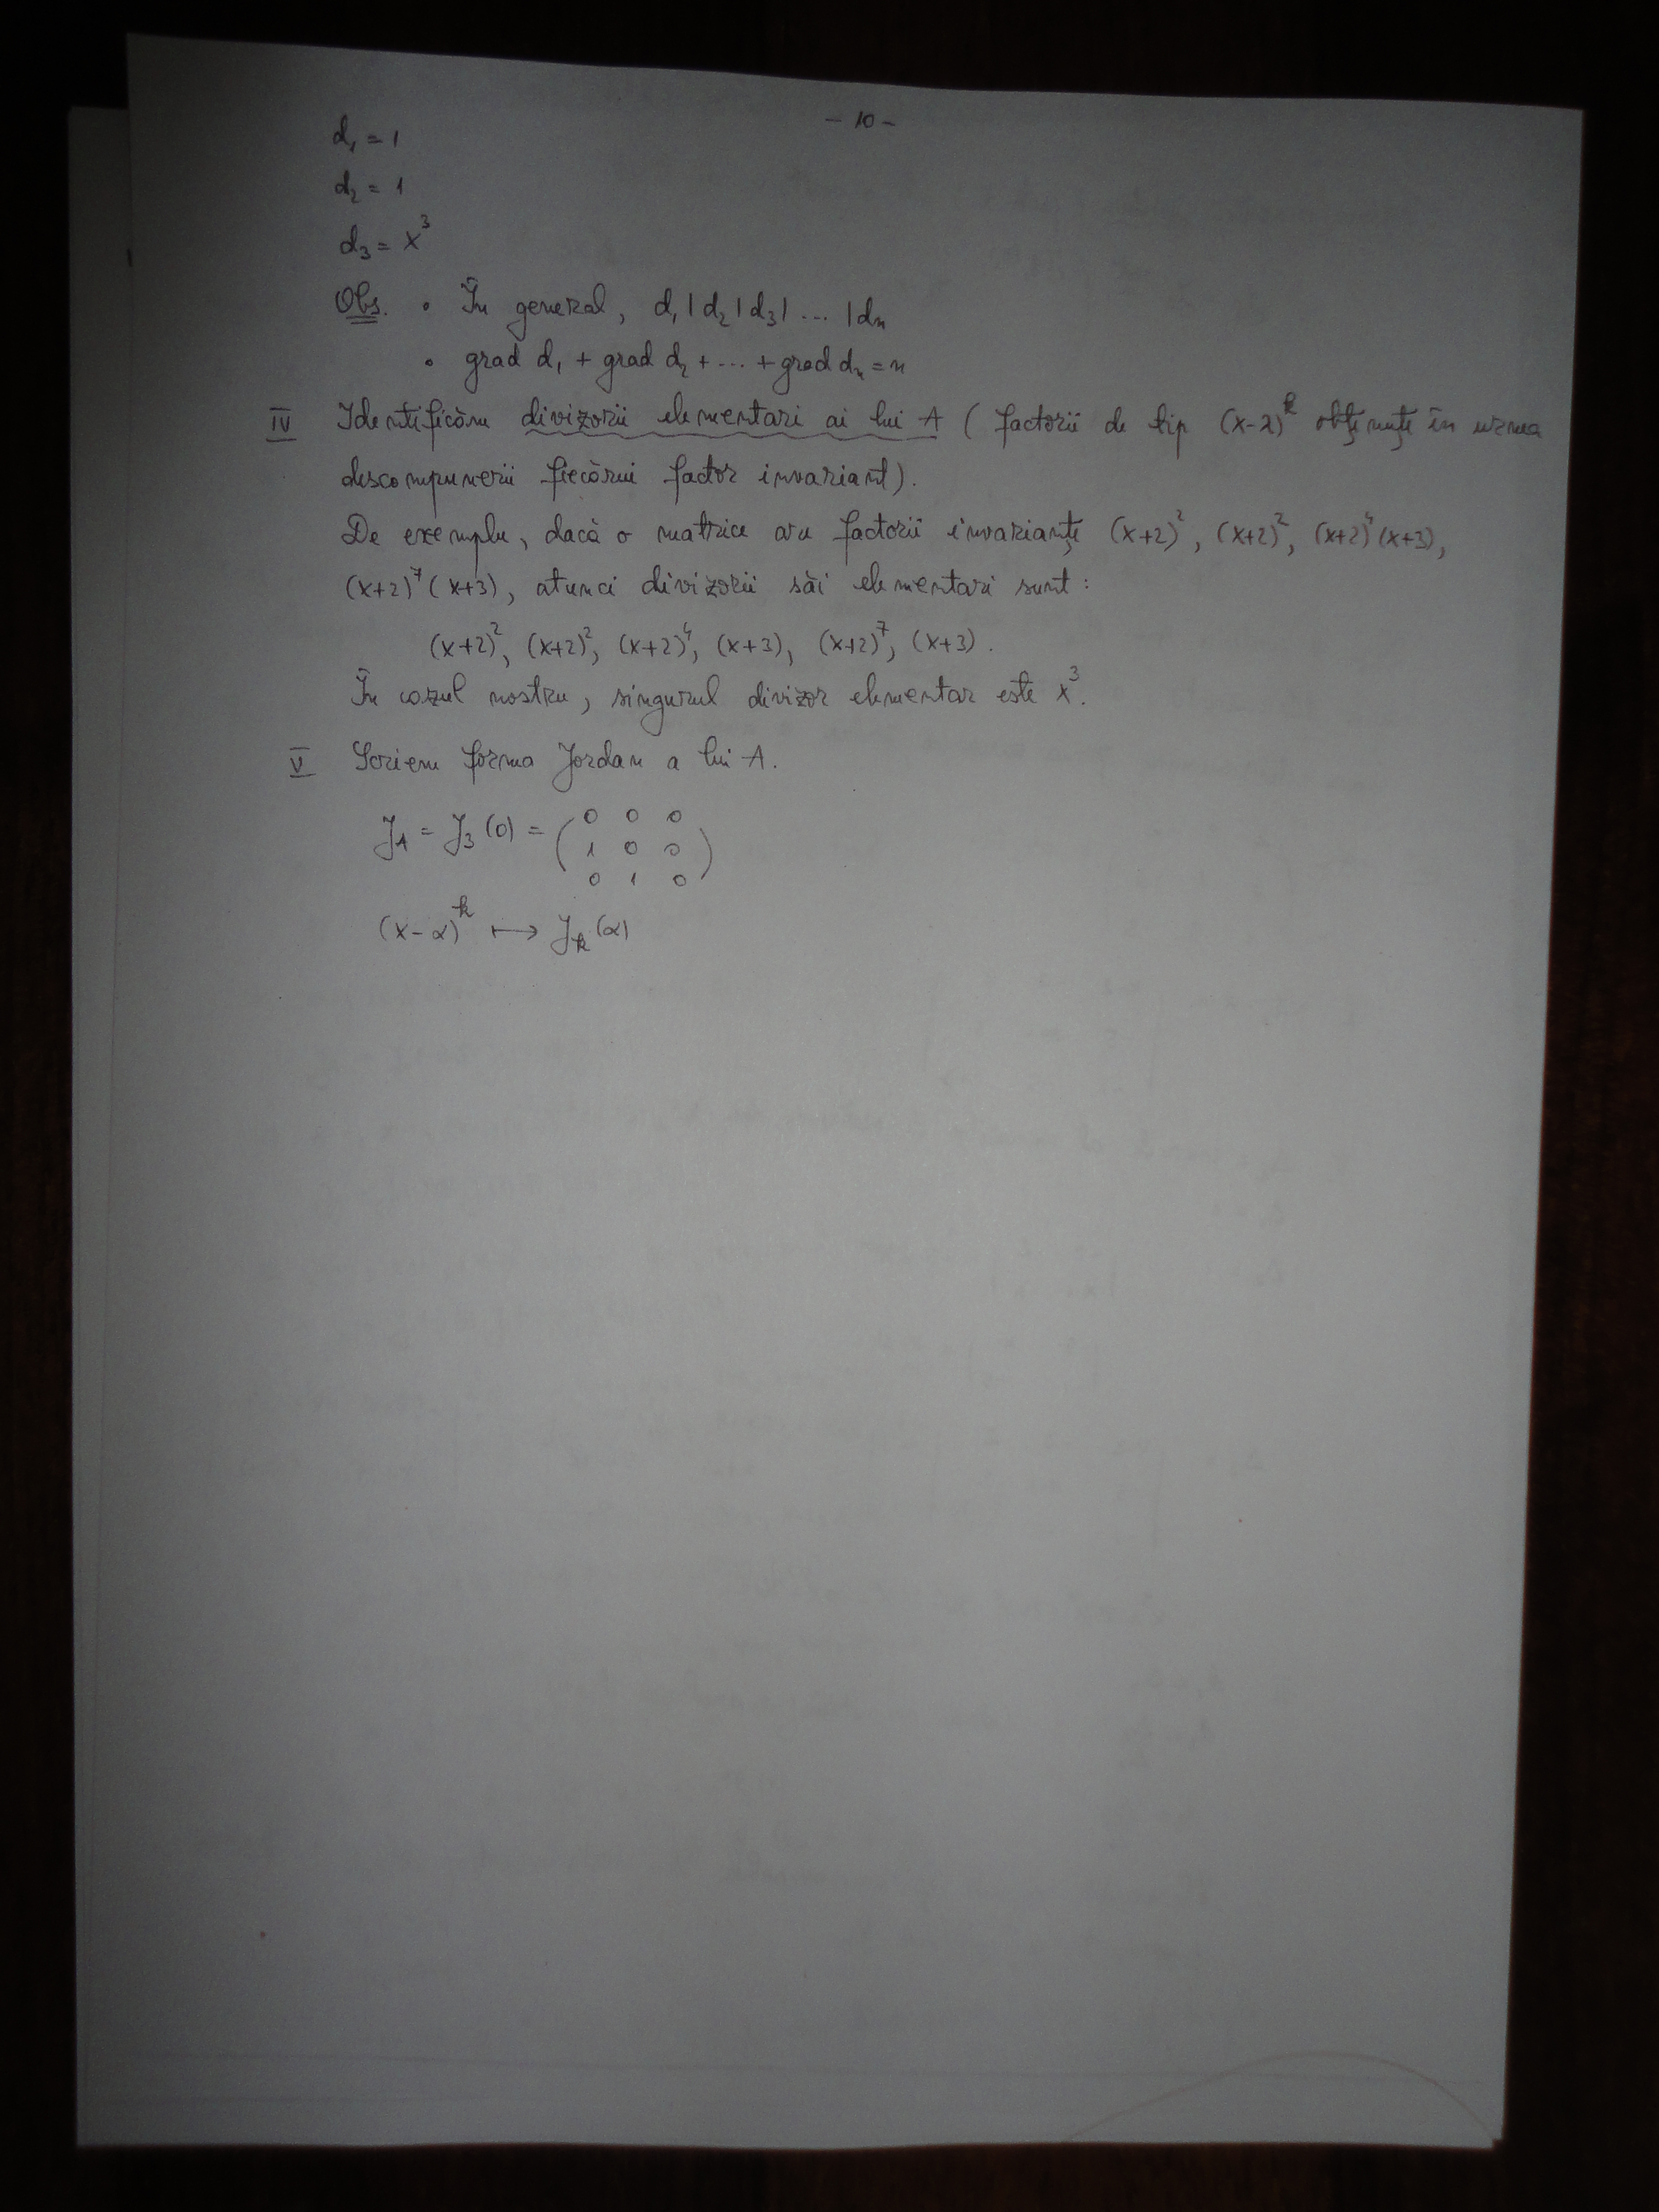 - 10 -
d₁ = 1
d₂ = 1
d₃ = x³
Obs. • În general, d₁ | d₂ | d₃ | ... | dₙ
• grad d₁ + grad d₂ + ... + grad dₙ = n
IV Identificăm divizorii elementari ai lui A (factorii de tip (x-α)ᵏ obţinuţi în urma
descompunerii fiecărui factor invariant).
De exemplu, dacă o matrice are factorii invarianţi (x+2)², (x+2)², (x+2)⁴(x+3),
(x+2)⁷(x+3), atunci divizorii săi elementari sunt:
(x+2)², (x+2)², (x+2)⁴, (x+3), (x+2)⁷, (x+3).
În cazul nostru, singurul divizor elementar este x³.
V Scriem forma Jordan a lui A.
J_A = J₃(0) = ( 0 0 0
1 0 0
0 1 0 )
(x-α)ᵏ ⟼ Jₖ(α)